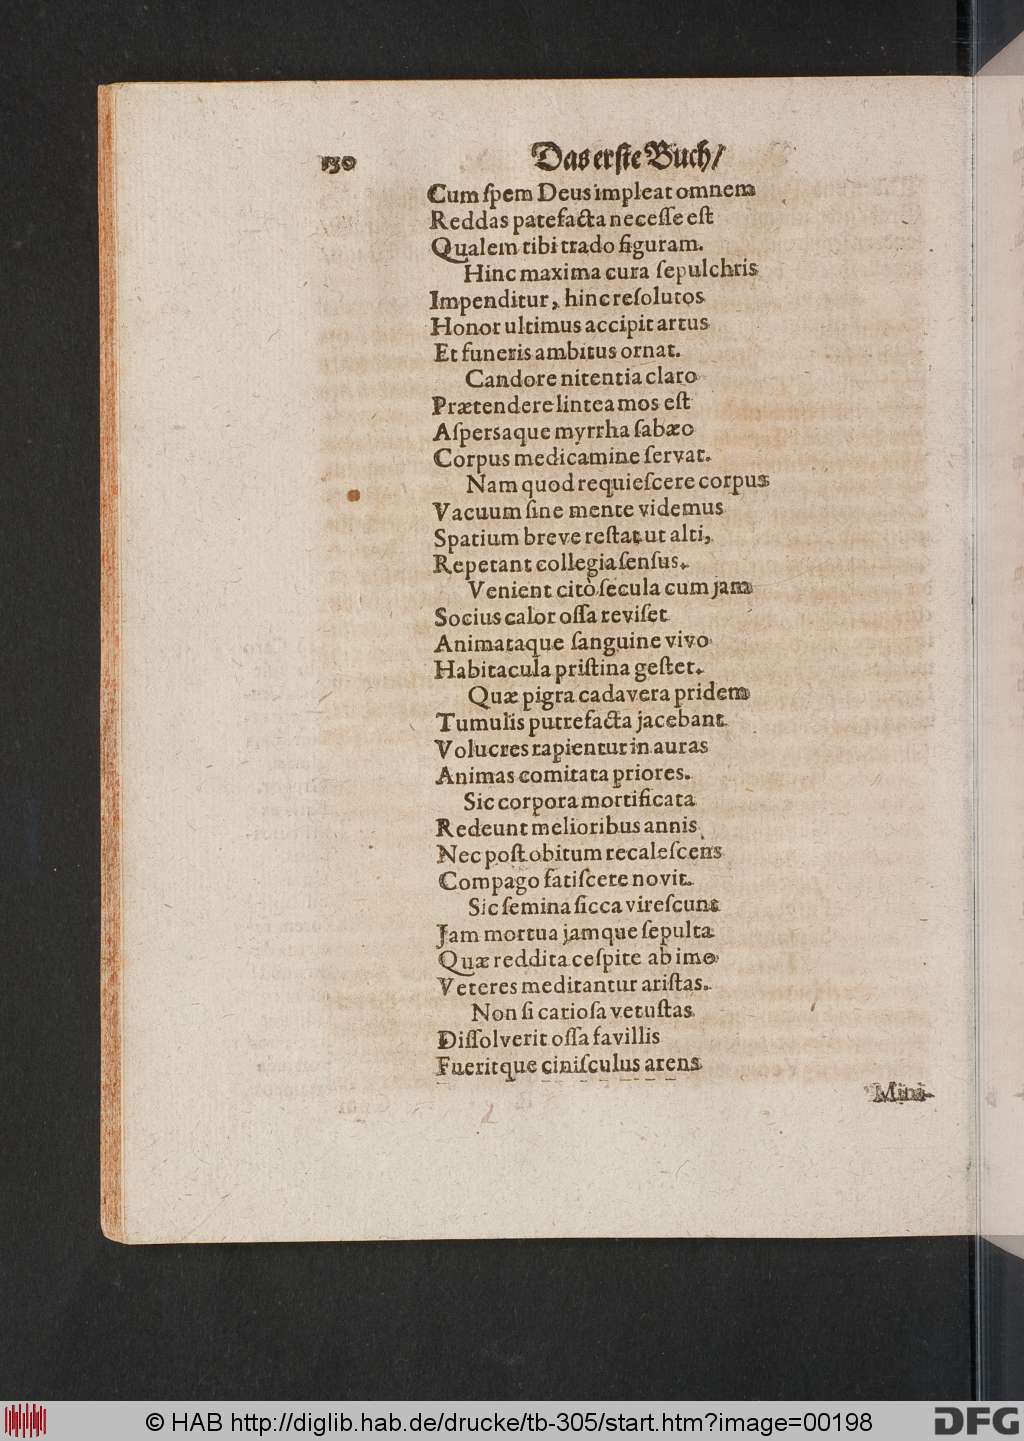 130 Das erste Buch/
Cum ſpem Deus impleat omnem
Reddas patefacta neceſſe eſt
Qualem tibi trado figuram.
Hinc maxima cura ſepulchris
Impenditur, hinc reſolutos
Honor ultimus accipit artus
Et funeris ambitus ornat.
Candore nitentia claro
Prætendere lintea mos eſt
Aſpersaque myrrha ſabæo
Corpus medicamine ſervat.
Nam quod requieſcere corpus
Vacuum ſine mente videmus
Spatium breve reſtat ut alti,
Repetant collegia ſenſus.
Venient citò ſecula cum jam
Socius calor oſſa reviſet
Animataque ſanguine vivo
Habitacula priſtina geſtet.
Quæ pigra cadavera pridem
Tumulis putrefacta jacebant
Volucres rapientur in auras
Animas comitata priores.
Sic corpora mortificata
Redeunt melioribus annis
Nec poſt obitum recaleſcens
Compago fatiſcere novit.
Sic ſemina ſicca vireſcunt
Jam mortua jamque ſepulta
Quæ reddita ceſpite ab imo
Veteres meditantur ariſtas.
Non ſi carioſa vetuſtas
Diſſolverit oſſa favillis
Fueritque ciniſculus arens
Mini-
© HAB http://diglib.hab.de/drucke/tb-305/start.htm?image=00198
DFG